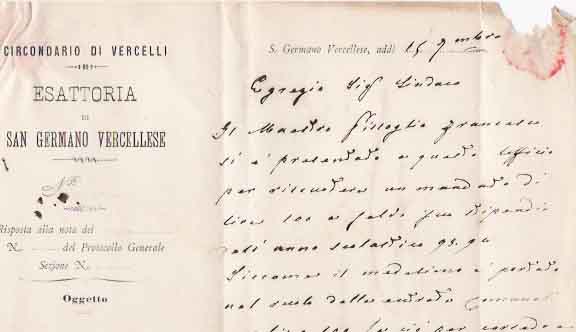 CIRCONDARIO DI VERCELLI
ESATTORIA
DI
SAN GERMANO VERCELLESE
Risposta alla nota del
N. del Protocollo Generale
Sezione N.
Oggetto
S. Germano Vercellese, addì 15 9mbre
Egregio Sig Sindaco
Il Maestro Francesco
si è presentato a questo Ufficio
per riscuotere un mandato di
lire 100 a saldo suo stipendio
dell anno scolastico 93.94
Siccome il medesimo è portato
nel ruolo delle entrate comunali